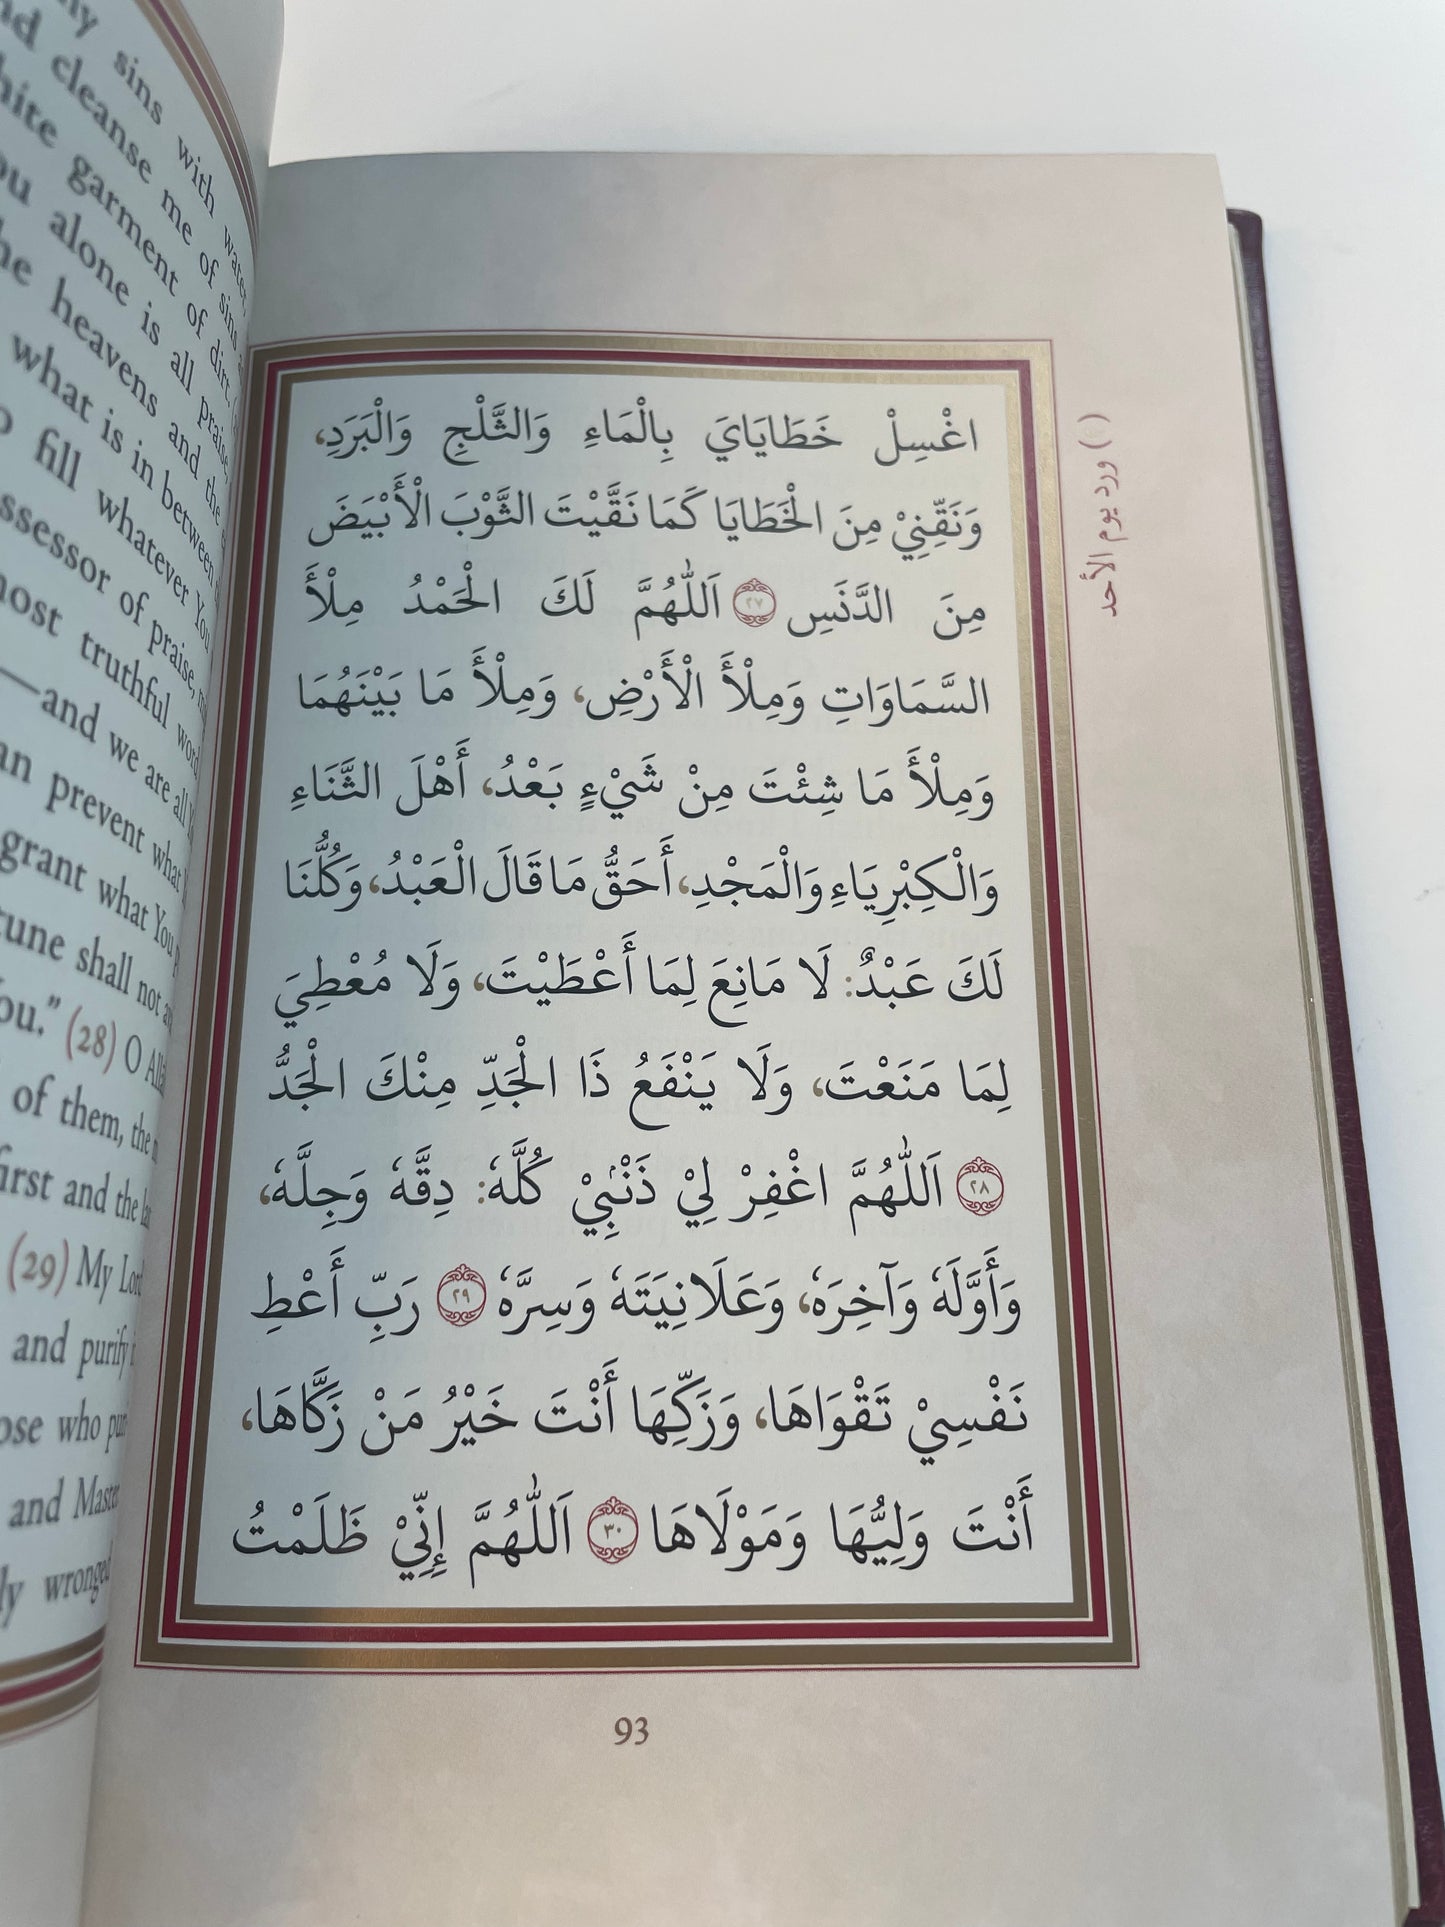 ny sins with water,
nd cleanse me of sins
hite garment of dirt,
ou alone is all praise,
he heavens and the
what is in between
o fill whatever You
ssessor of praise,
nost truthful word
—and we are all
an prevent what
grant what You
tune shall not
You." (28) O Alla
of them, the
first and the la
(29) My Lord
and purify
ose who puri
and Master
ly wronged
اغْسِلْ خَطَايَايَ بِالْمَاءِ وَالثَّلْجِ وَالْبَرَدِ،
وَنَقِّنِيْ مِنَ الْخَطَايَا كَمَا نَقَّيْتَ الثَّوْبَ الْأَبْيَضَ
مِنَ الدَّنَسِ ٢٧ اَللّٰهُمَّ لَكَ الْحَمْدُ مِلْأَ
السَّمَاوَاتِ وَمِلْأَ الْأَرْضِ، وَمِلْأَ مَا بَيْنَهُمَا
وَمِلْأَ مَا شِئْتَ مِنْ شَيْءٍ بَعْدُ، أَهْلَ الثَّنَاءِ
وَالْكِبْرِيَاءِ وَالْمَجْدِ، أَحَقُّ مَا قَالَ الْعَبْدُ، وَكُلُّنَا
لَكَ عَبْدٌ: لَا مَانِعَ لِمَا أَعْطَيْتَ، وَلَا مُعْطِيَ
لِمَا مَنَعْتَ، وَلَا يَنْفَعُ ذَا الْجَدِّ مِنْكَ الْجَدُّ
٢٨ اَللّٰهُمَّ اغْفِرْ لِيْ ذَنْۢبِيْ كُلَّهٗ: دِقَّهٗ وَجِلَّهٗ،
وَأَوَّلَهٗ وَآخِرَهٗ، وَعَلَانِيَتَهٗ وَسِرَّهٗ ٢٩ رَبِّ أَعْطِ
نَفْسِيْ تَقْوَاهَا، وَزَكِّهَا أَنْتَ خَيْرُ مَنْ زَكَّاهَا،
أَنْتَ وَلِيُّهَا وَمَوْلَاهَا ٣٠ اَللّٰهُمَّ إِنِّيْ ظَلَمْتُ
ورد يوم الأحد
93